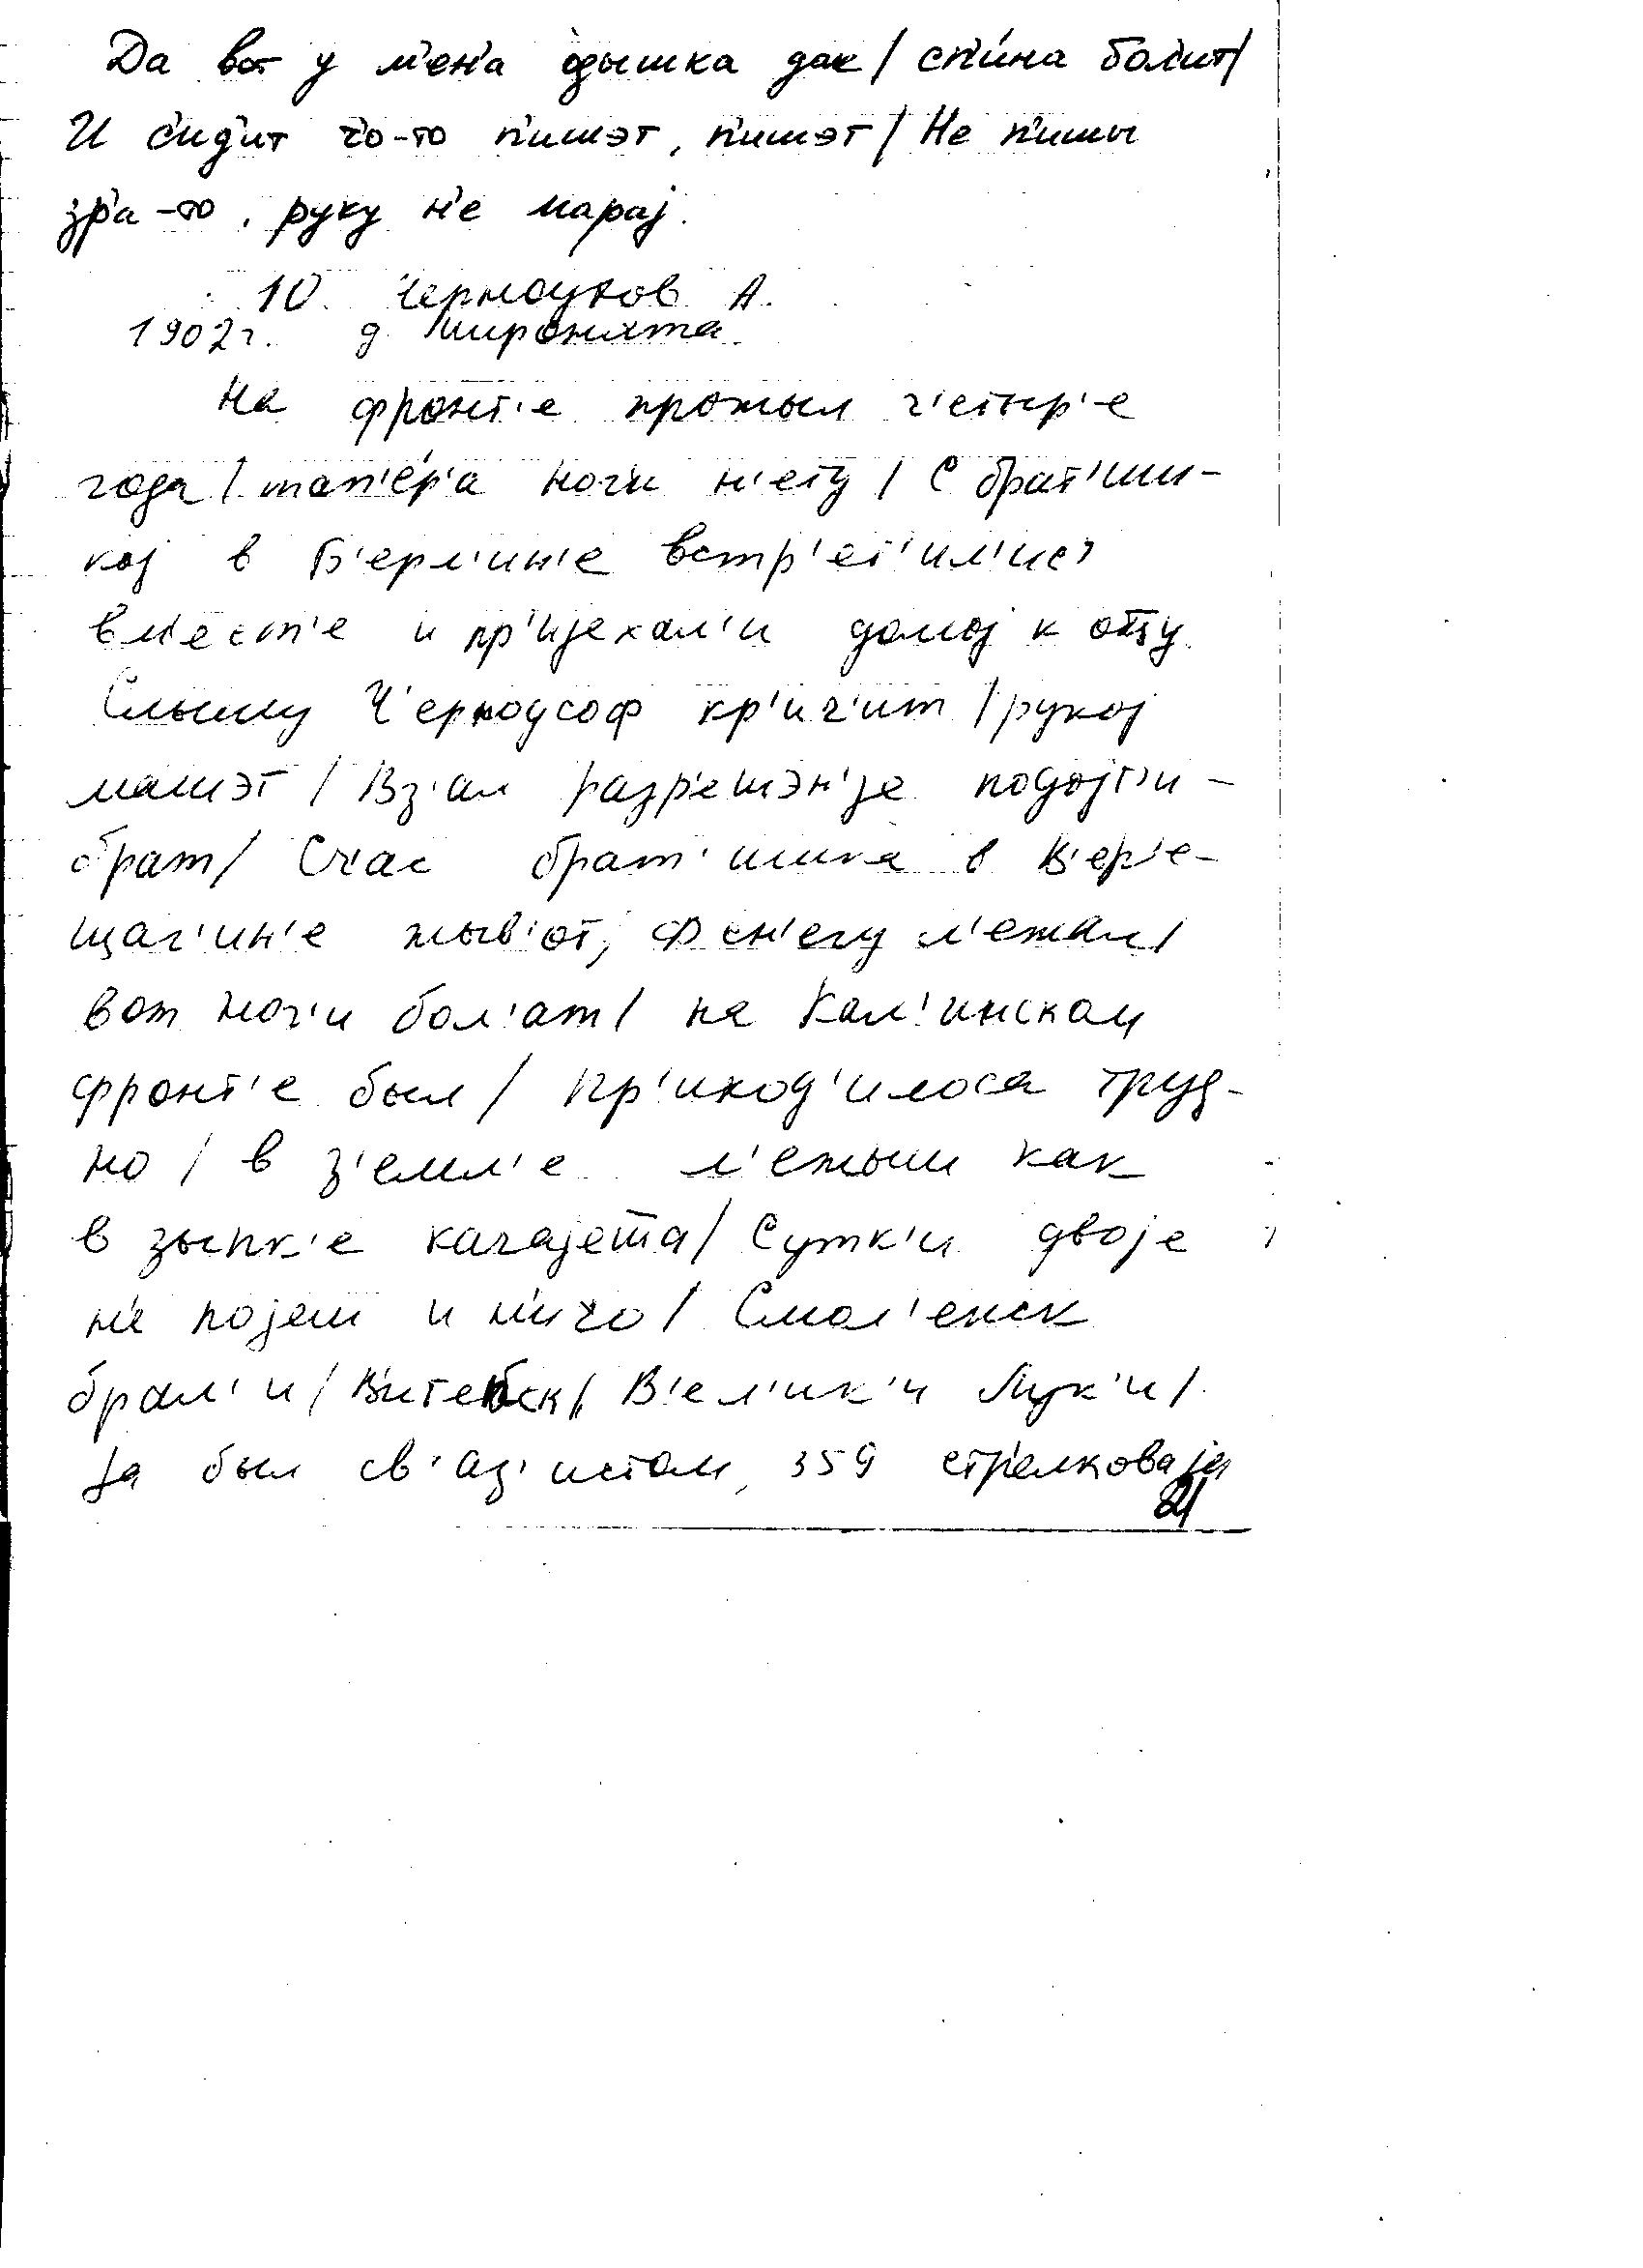 Да вот у м'ен'а одышка дак / сп'и́на бол'ит /
И с'ид'ит ч'о-то п'ишэт, п'ишэт / Не п'ишы
зр'а-то, руку н'е марај.
10. Черноусов А.
1902 г. д. Миронята
На фронт'е прожыл ч'етыр'е
года / тап'е́р'а ноги н'ету / С брат'иш-
кој в Б'ерл'ин'е встр'ет'ил'ис'
вм'ест'е и пр'ијехал'и домој к отцу.
Слышу Ч'ерноусоф кр'ич'ит / рукој
машэт / Вз'ал разр'ешэн'је подојт'и –
брат / Счас брат'ишка в В'ер'е-
щаг'ин'е жыв'от, Ф сн'егу л'ежал /
вот ног'и бол'ат / на Кал'инском
фронт'е был / Пр'иход'илоса труд-
но / в з'емл'е л'ежыш как
в зыпк'е качајета / Сутк'и двоје
н'е појеш и н'ичо / Смол'енск
брал'и / В'итебск / В'ел'ик'и Лук'и /
Ја был св'аз'истом, 359 стр'елковаја
21